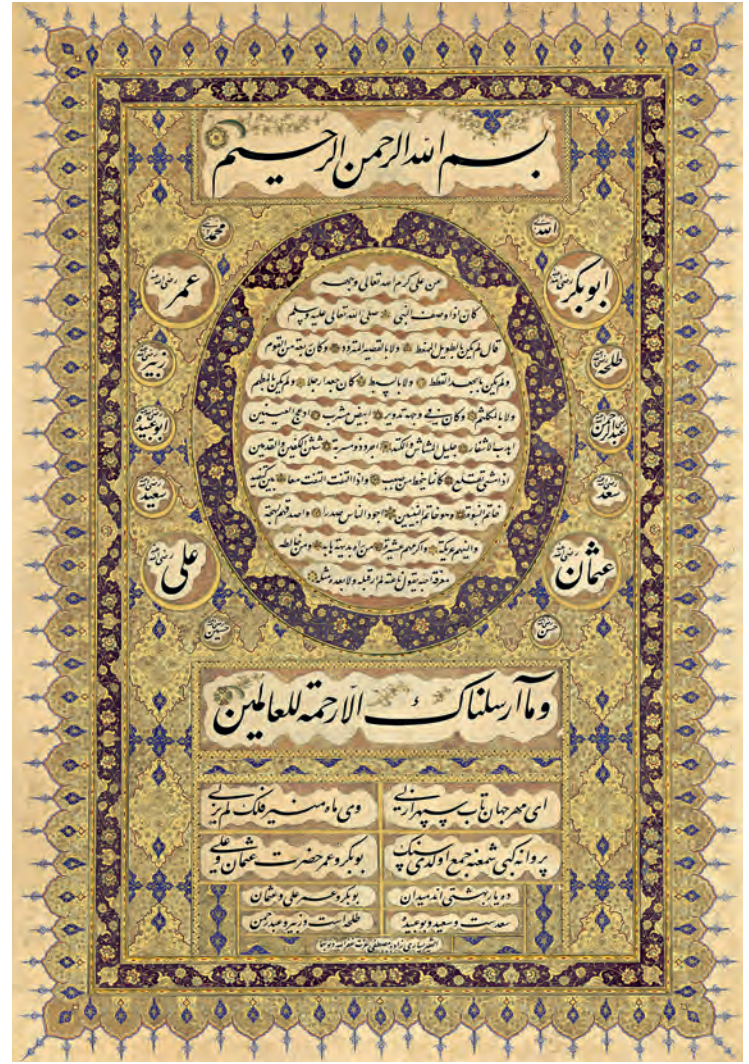 بسم الله الرحمن الرحيم
الله
محمد
ابوبكر رضی الله عنه
عمر رضی الله عنه
طلحه
زبیر
عبدالرحمن
ابوعبیده
سعد
سعید
عثمان رضی الله عنه
علی رضی الله عنه
حسن
حسین
عن علی كرم الله تعالی وجهه
كان اذا وصف النبی صلی الله تعالی علیه وسلم
قال لم یكن بالطویل الممغط ولا بالقصیر المتردد وكان ربعة من القوم
ولم یكن بالجعد القطط ولا بالسبط كان جعدا رجلا ولم یكن بالمطهم
ولا بالمكلثم وكان فی وجهه تدویر ابیض مشرب ادعج العینین
اهدب الاشفار جلیل المشاش والكتد اجرد ذو مسربة شثن الكفین والقدمین
اذا مشی تقلع كانما ینحط من صبب واذا التفت التفت معا بین كتفیه
خاتم النبوة وهو خاتم النبیین اجود الناس صدرا واصدقهم لهجة
والینهم عریكة واكرمهم عشیرة من رآه بدیهة هابه ومن خالطه
معرفة احبه یقول ناعته لم ار قبله ولا بعده مثله
وما أرسلناك الا رحمة للعالمین
ای مهر جهان تاب سپهر ازلی
وی ماه منیر فلك لم یزلی
پروانه كبی شمعنه جمع اولدی سنك
بوبكر و عمر حضرت عثمان و علی
ده یار بهشتی اند میدان
بوبكر و عمر علی و عثمان
سعدست و سعید و بوعبیده
طلحه است و زبیر و عبدرحمن